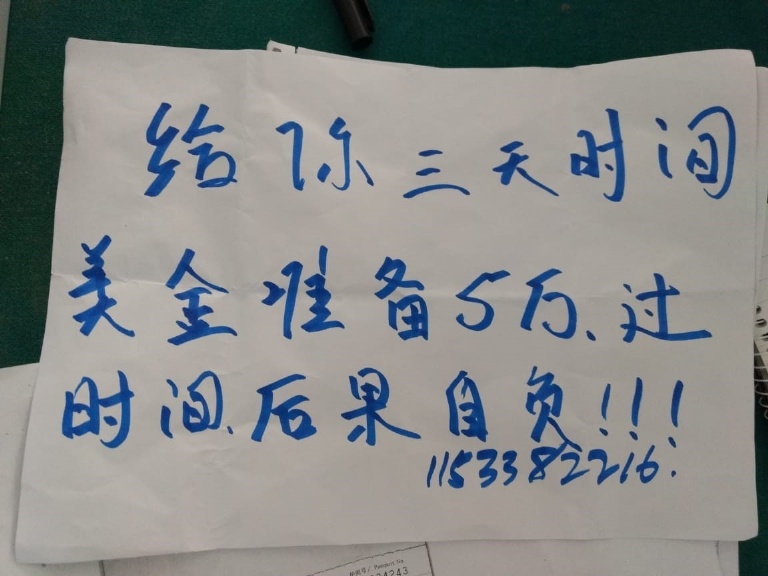 给你三天时间
美金准备5万、过
时间、后果自负!!!
1153382216.
护照号/Passport No.